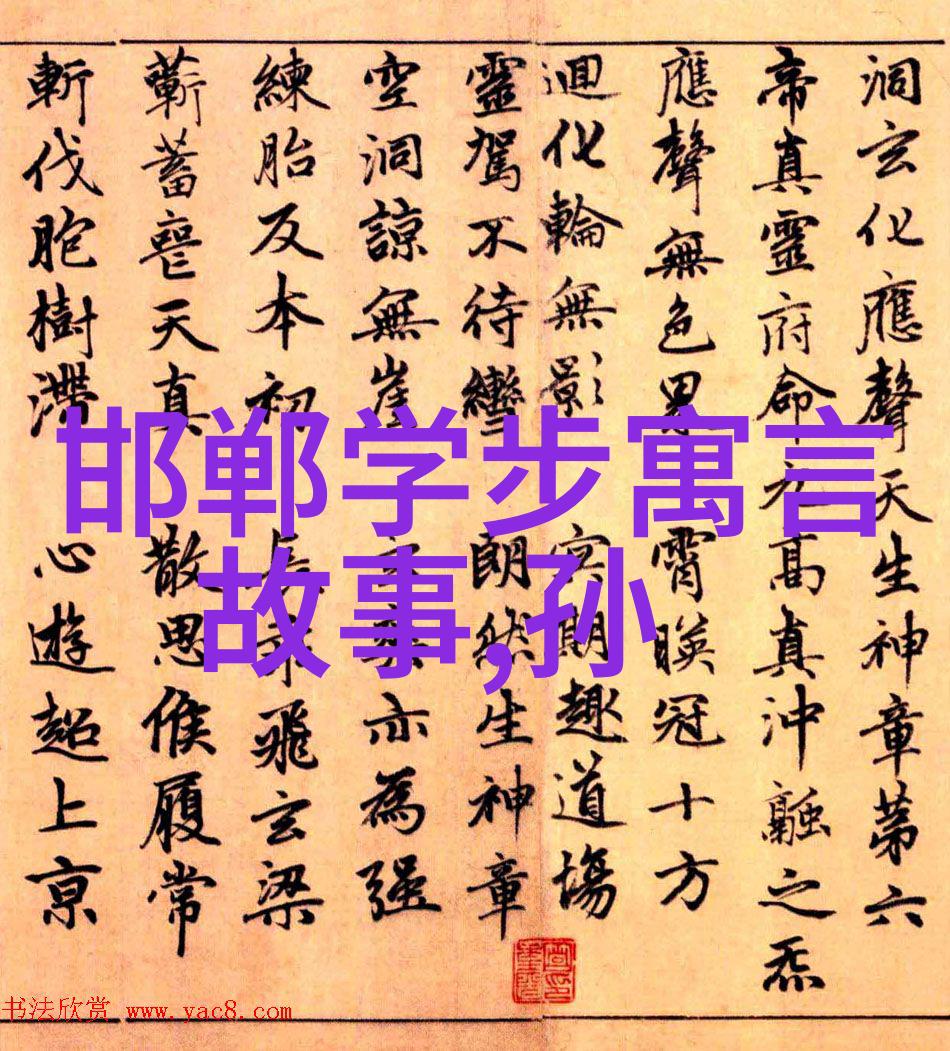 洞玄化應聲天生神章苐六
帝真靈府命高真沖融之炁
應聲無色界霄暎冠十方
迴化輪無影 冥期趣道場
靈駕不待轡 朗然生神章
空洞諒無崖 玄爽亦為强
練胎反本初 長乘飛玄梁
蓄喪天真 散思候履常
斬伐胞樹滯 心遊超上京
邯郸学步寓言
故事,孙
书法欣赏 www.yac8.com